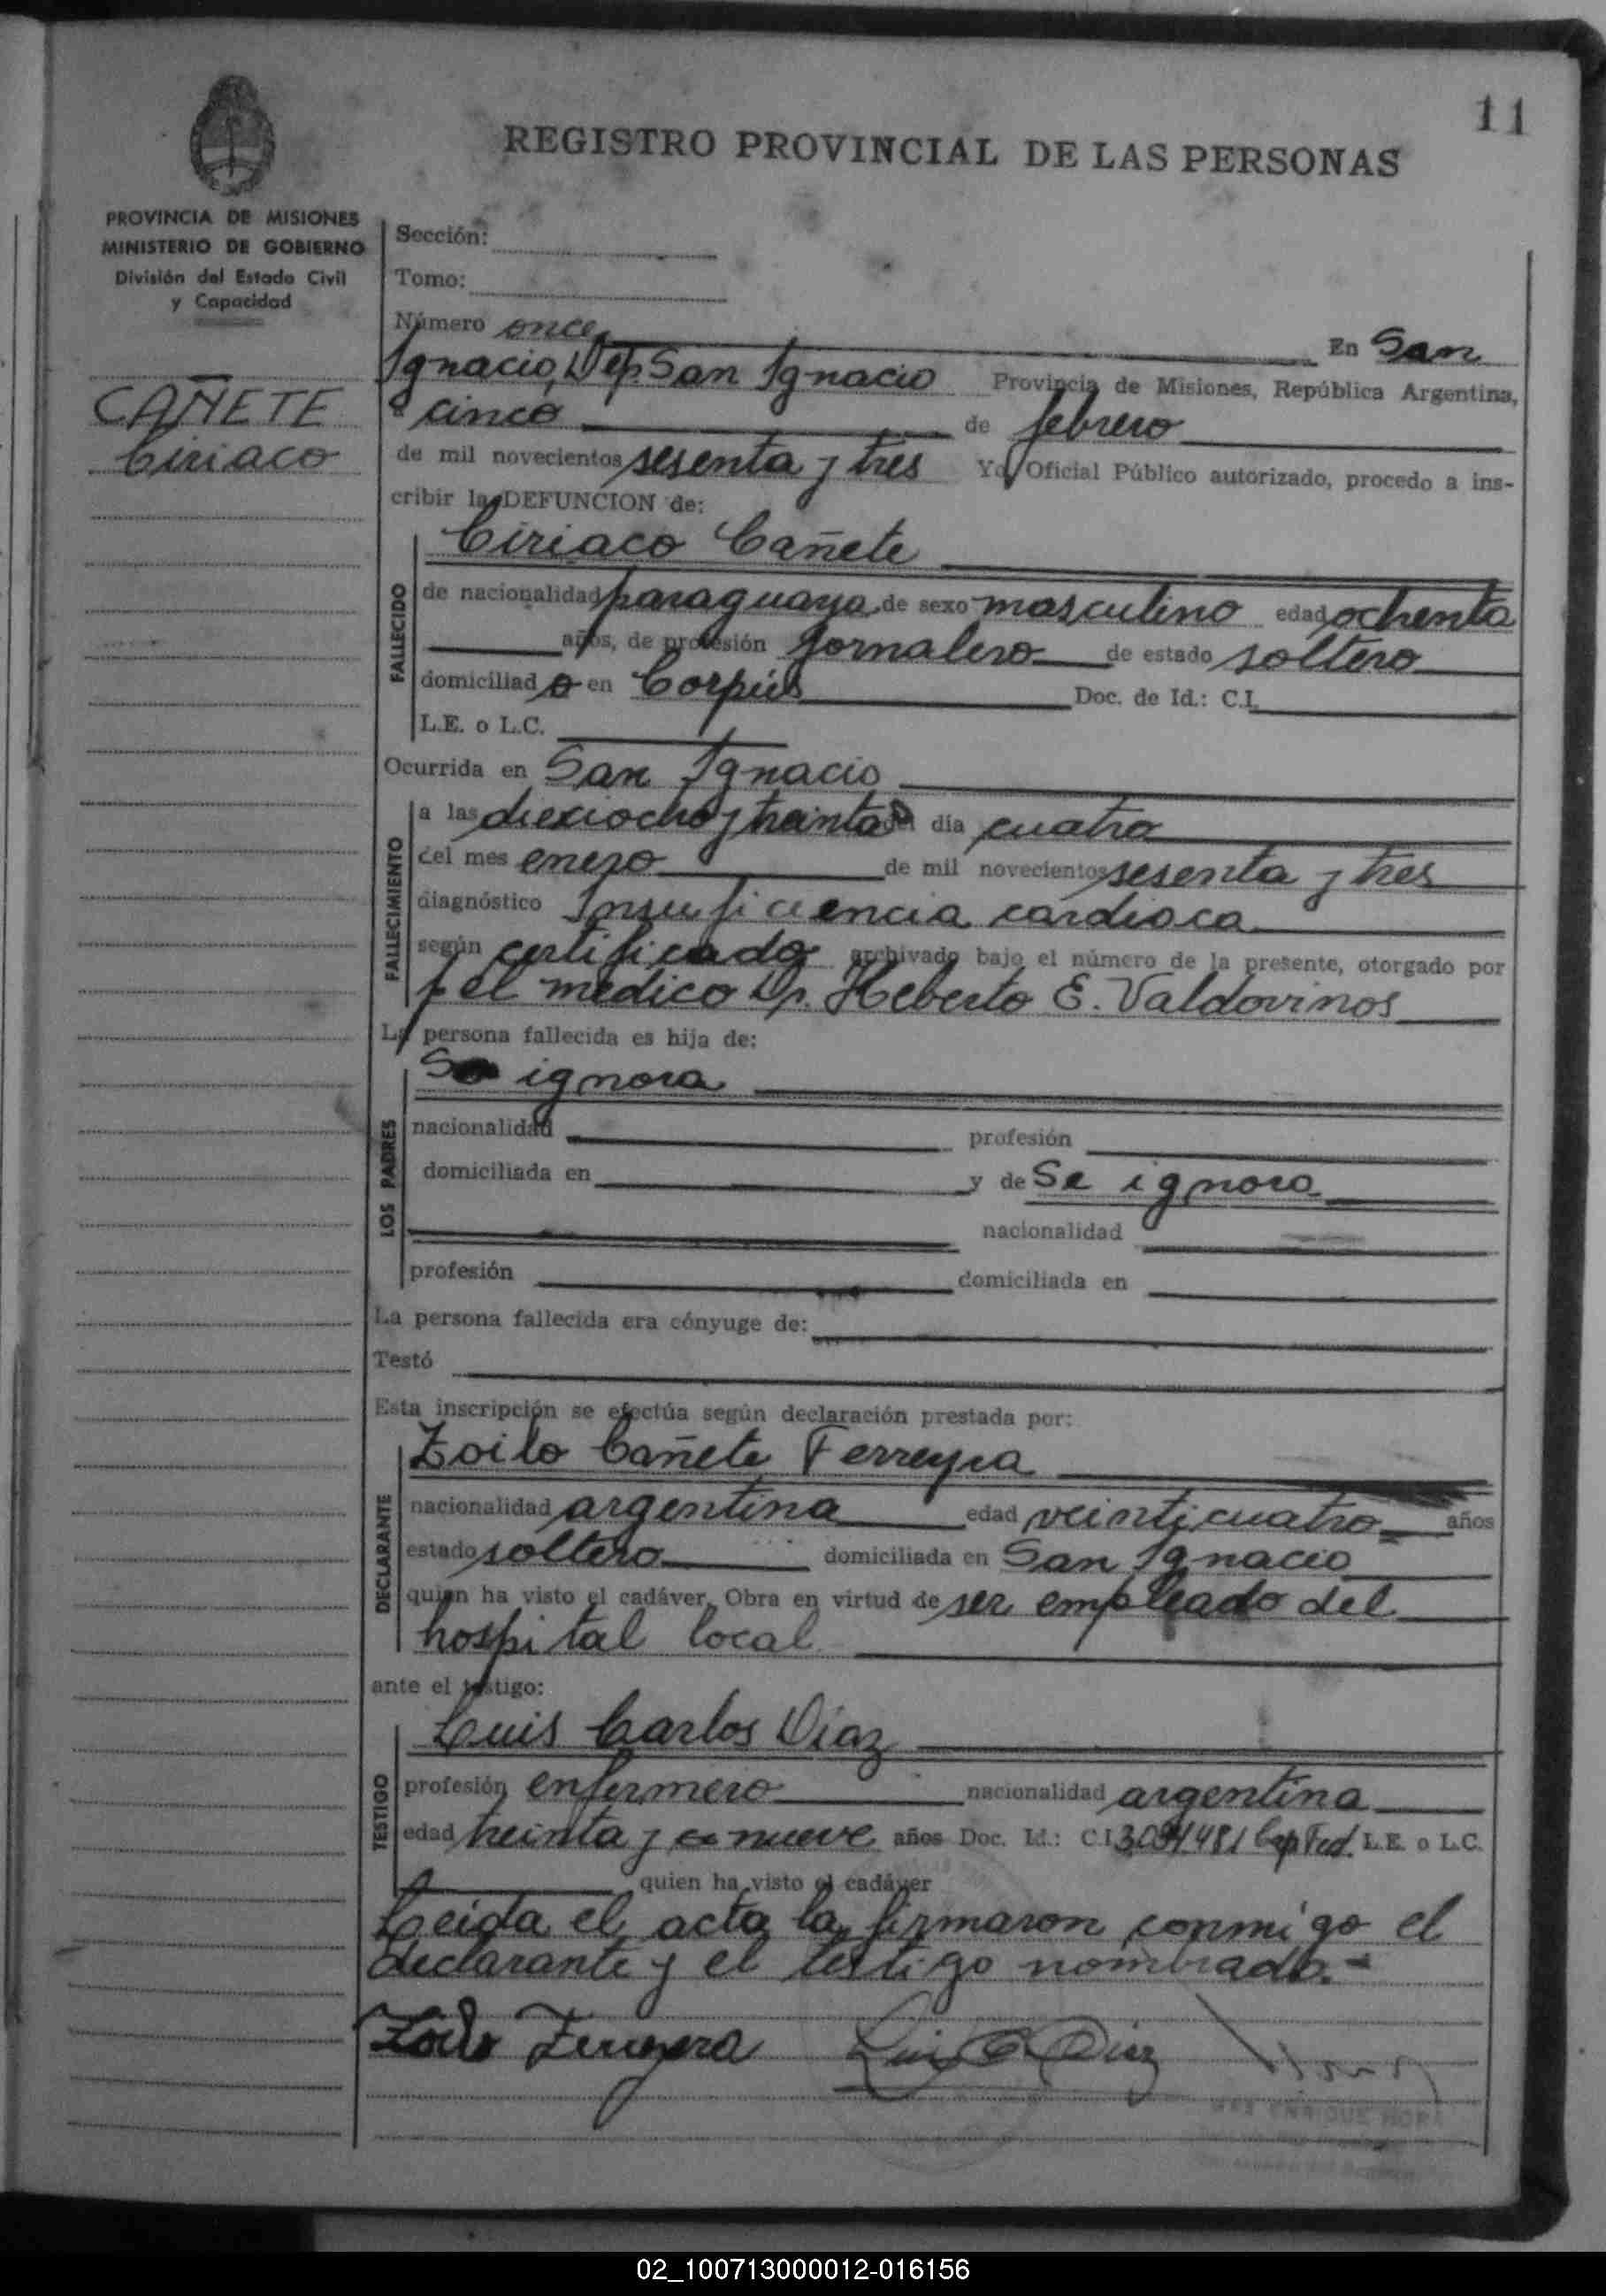 11
REGISTRO PROVINCIAL DE LAS PERSONAS
PROVINCIA DE MISIONES
MINISTERIO DE GOBIERNO
División del Estado Civil
y Capacidad
CAÑETE
Ciriaco
Sección:
Tomo:
Número once En San
Ignacio, Dep. San Ignacio Provincia de Misiones, República Argentina,
a cinco de febrero
de mil novecientos sesenta y tres Yo, Oficial Público autorizado, procedo a ins-
cribir la DEFUNCION de:
Ciriaco Cañete
FALLECIDO
de nacionalidad paraguaya de sexo masculino edad ochenta
años, de profesión jornalero de estado soltero
domiciliado en Corpus Doc. de Id.: C.I.
L.E. o L.C.
Ocurrida en San Ignacio
FALLECIMIENTO
a las dieciocho y treinta del día cuatro
del mes enero de mil novecientos sesenta y tres
diagnóstico Insuficiencia cardiaca
según certificado archivado bajo el número de la presente, otorgado por
p el médico Dr. Heberto E. Valdovinos
La persona fallecida es hija de:
LOS PADRES
Se ignora
nacionalidad profesión
domiciliada en y de Se ignora
nacionalidad
profesión domiciliada en
La persona fallecida era cónyuge de:
Testó
Esta inscripción se efectúa según declaración prestada por:
DECLARANTE
Zoilo Cañete Ferreyra
nacionalidad argentina edad veinticuatro años
estado soltero domiciliada en San Ignacio
quien ha visto el cadáver. Obra en virtud de ser empleado del
hospital local
ante el testigo:
TESTIGO
Luis Carlos Díaz
profesión enfermero nacionalidad argentina
edad treinta y nueve años Doc. Id.: C.I. Cap Fed. L.E. o L.C.
quien ha visto el cadáver
Leida el acta la firmaron conmigo el
declarante y el testigo nombrado.-
Zoilo Ferreyra Luis C Díaz
ENRIQUE MORA
02_100713000012-016156